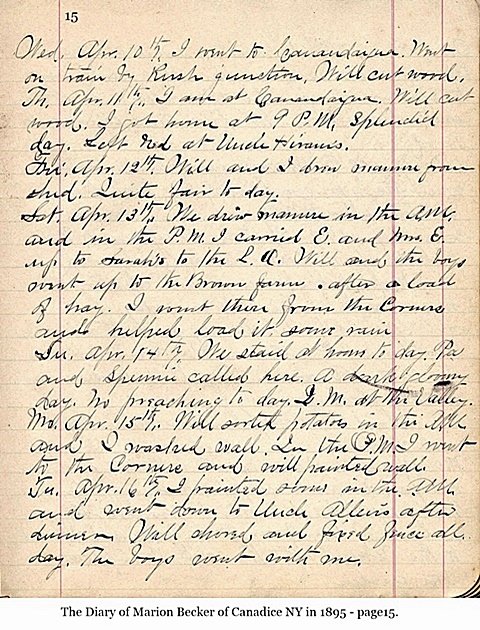 15
Wed. Apr. 10th, I went to Canandaigua. Went
on train by Rush junction. Will cut wood.
Th. Apr. 11th, I am at Canandaigua. Will cut
wood. I got home at 9 P.M. Splendid
day. Left Ned at Uncle Hiram's.
Fri. Apr. 12th. Will and I drew manure from
shed. Quite fair to day.
Sat. Apr. 13th, We drew manure in the A.M.
and in the P.M. I carried E. and Mrs. E.
up to Sarah's to the L. A. Will and the boys
went up to the Brown farm after a load
of hay. I went there from the Corners
and helped load it. some rain
Su. Apr. 14th, We staid at home to day. Pa
and called here. A dark gloomy
day. No preaching to day. Q. M. at the Valley.
Mo. Apr. 15th, Will sorted potatoes in the A.M.
and I washed wall. In the P.M. I went
to the Corners and Will painted wall.
Tu. Apr. 16th, I painted some in the A.M.
and went down to Uncle Allen's after
dinner. Will chored and fixed fence all
day. The boys went with me.
The Diary of Marion Becker of Canadice NY in 1895 - page15.